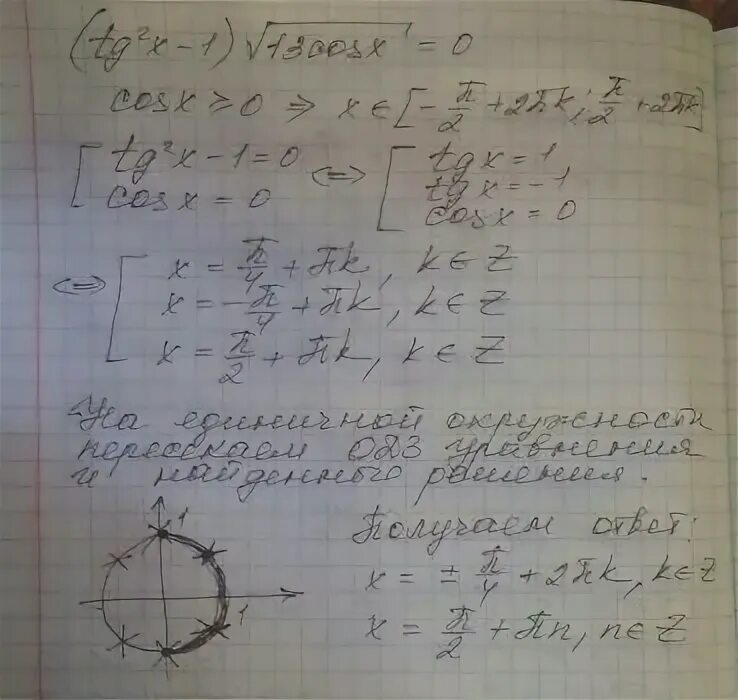 (tg²x-1)√13cosx = 0
cosx ≥ 0 ⇒ x ∈ [-π/2 + 2πk; π/2 + 2πk]
[ tg²x-1=0 ⇔ [ tgx = 1
cosx = 0 tgx = -1
cosx = 0
⇔ [ x = π/4 + πk, k ∈ Z
x = -π/4 + πk, k ∈ Z
x = π/2 + πk, k ∈ Z
На единичной окружности
пересекаем ОДЗ уравнения
и найденные решения.
1
1
Получаем ответ:
x = ± π/4 + 2πk, k∈Z
x = π/2 + πn, n∈Z